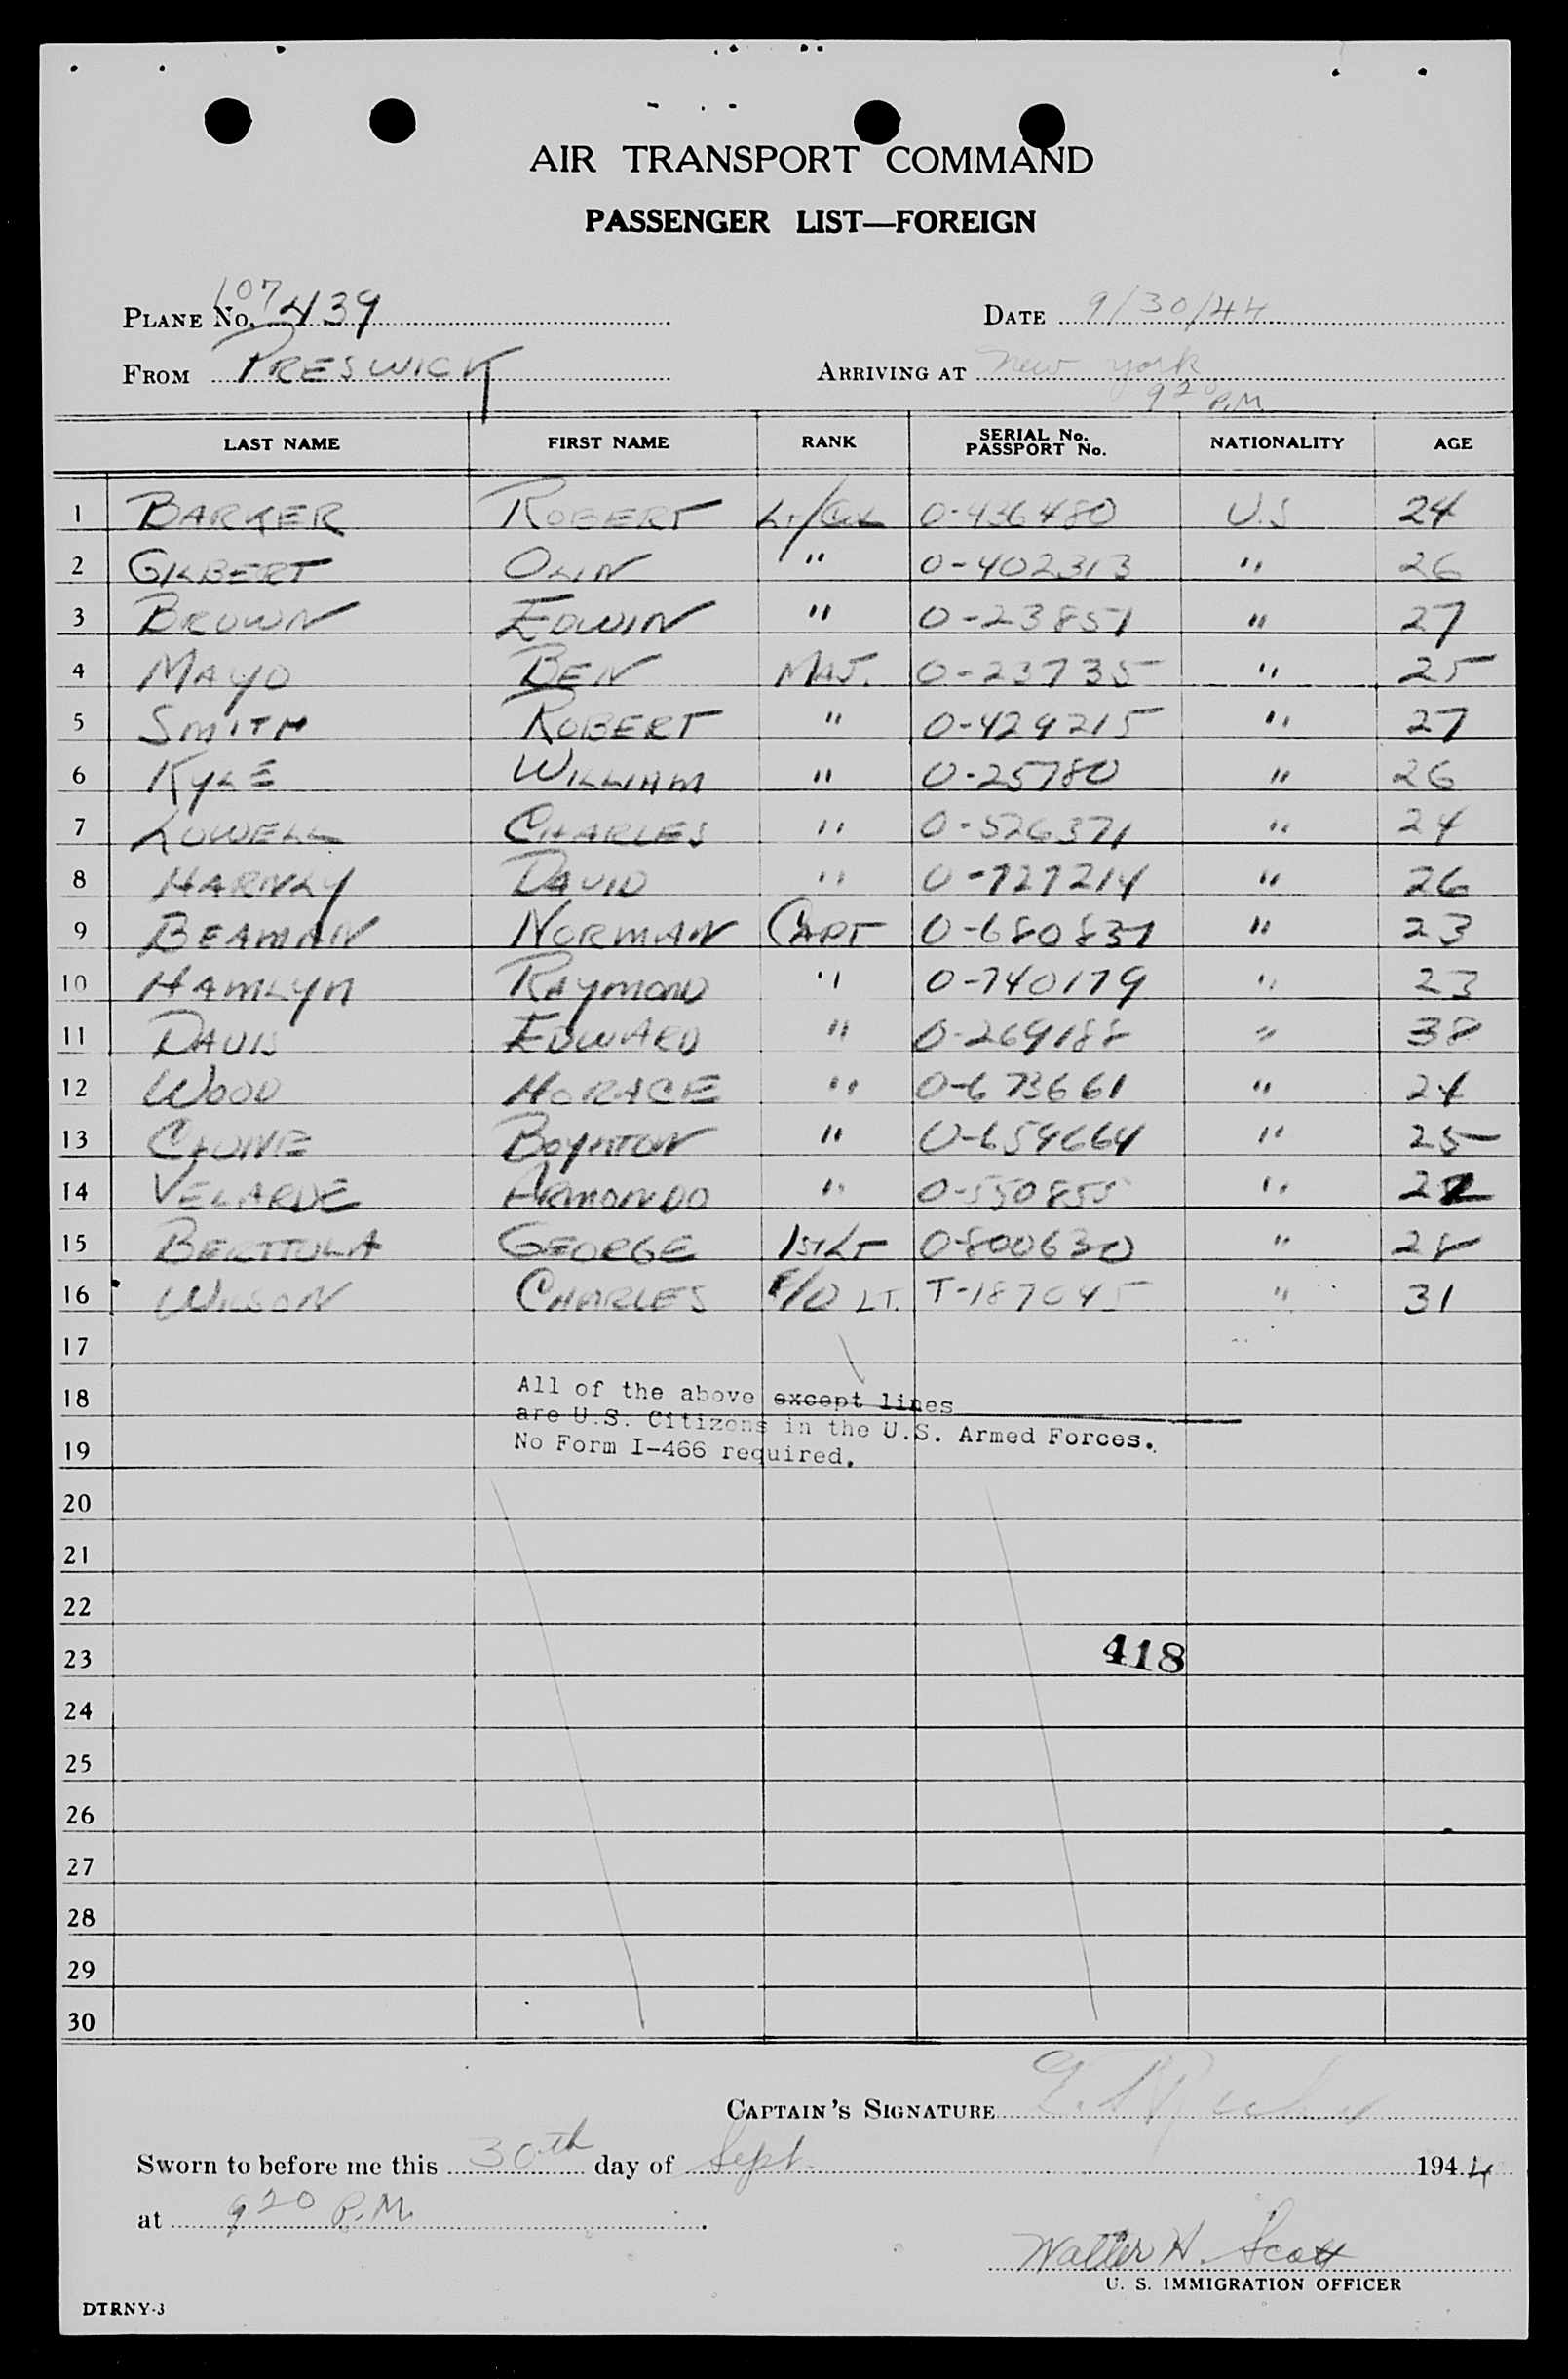 AIR TRANSPORT COMMAND
PASSENGER LIST—FOREIGN
PLANE NO. 107439 DATE 9/30/44
FROM PRESWICK ARRIVING AT New York
9 20 P.M
LAST NAME FIRST NAME RANK SERIAL No. PASSPORT No. NATIONALITY AGE
1 BARKER ROBERT LT/COL O-436480 U.S 24
2 GILBERT OLIN " O-402313 " 26
3 BROWN EDWIN " O-23851 " 27
4 MAYO BEN MAJ. O-23735 " 25
5 SMITH ROBERT " O-429215 " 27
6 KYLE WILLIAM " O-25780 " 26
7 LOWELL CHARLES " O-526371 " 24
8 HARNLY DAVID " O-727214 " 26
9 BEAMAN NORMAN CAPT O-680837 " 23
10 HAMLYN RAYMOND " O-740179 " 23
11 DAVIS EDWARD " O-269188 " 38
12 WOOD HORACE " O-673661 " 24
13 CLUNE BOYNTON " O-659664 " 25
14 VELARDE ARMONDO " O-550855 "
15 BERTTOLA GEORGE 1ST LT O-800630 " 28
16 WILSON CHARLES F/O LT. T-187045 " 31
17
18 All of the above except lines
are U.S. Citizens in the U.S. Armed Forces.
19 No Form I-466 required.
20
21
22
23 418
24
25
26
27
28
29
30
CAPTAIN'S SIGNATURE
Sworn to before me this 30th day of Sept. 1944
at 9 20 P.M.
Walter H. Scott
U. S. IMMIGRATION OFFICER
DTRNY-3